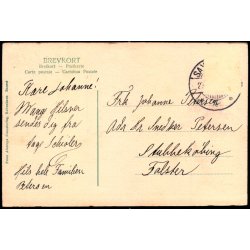 BREVKORT
Brevkort - Postkarte
Carte postale - Cartolina Postale
Kære Johanne!
Mange Hilsner
sendes dig fra
Hils hele Familien
Petersen
Frk Johanne
Adr Hr Snedker Petersen
Stubbekøbing
Falster